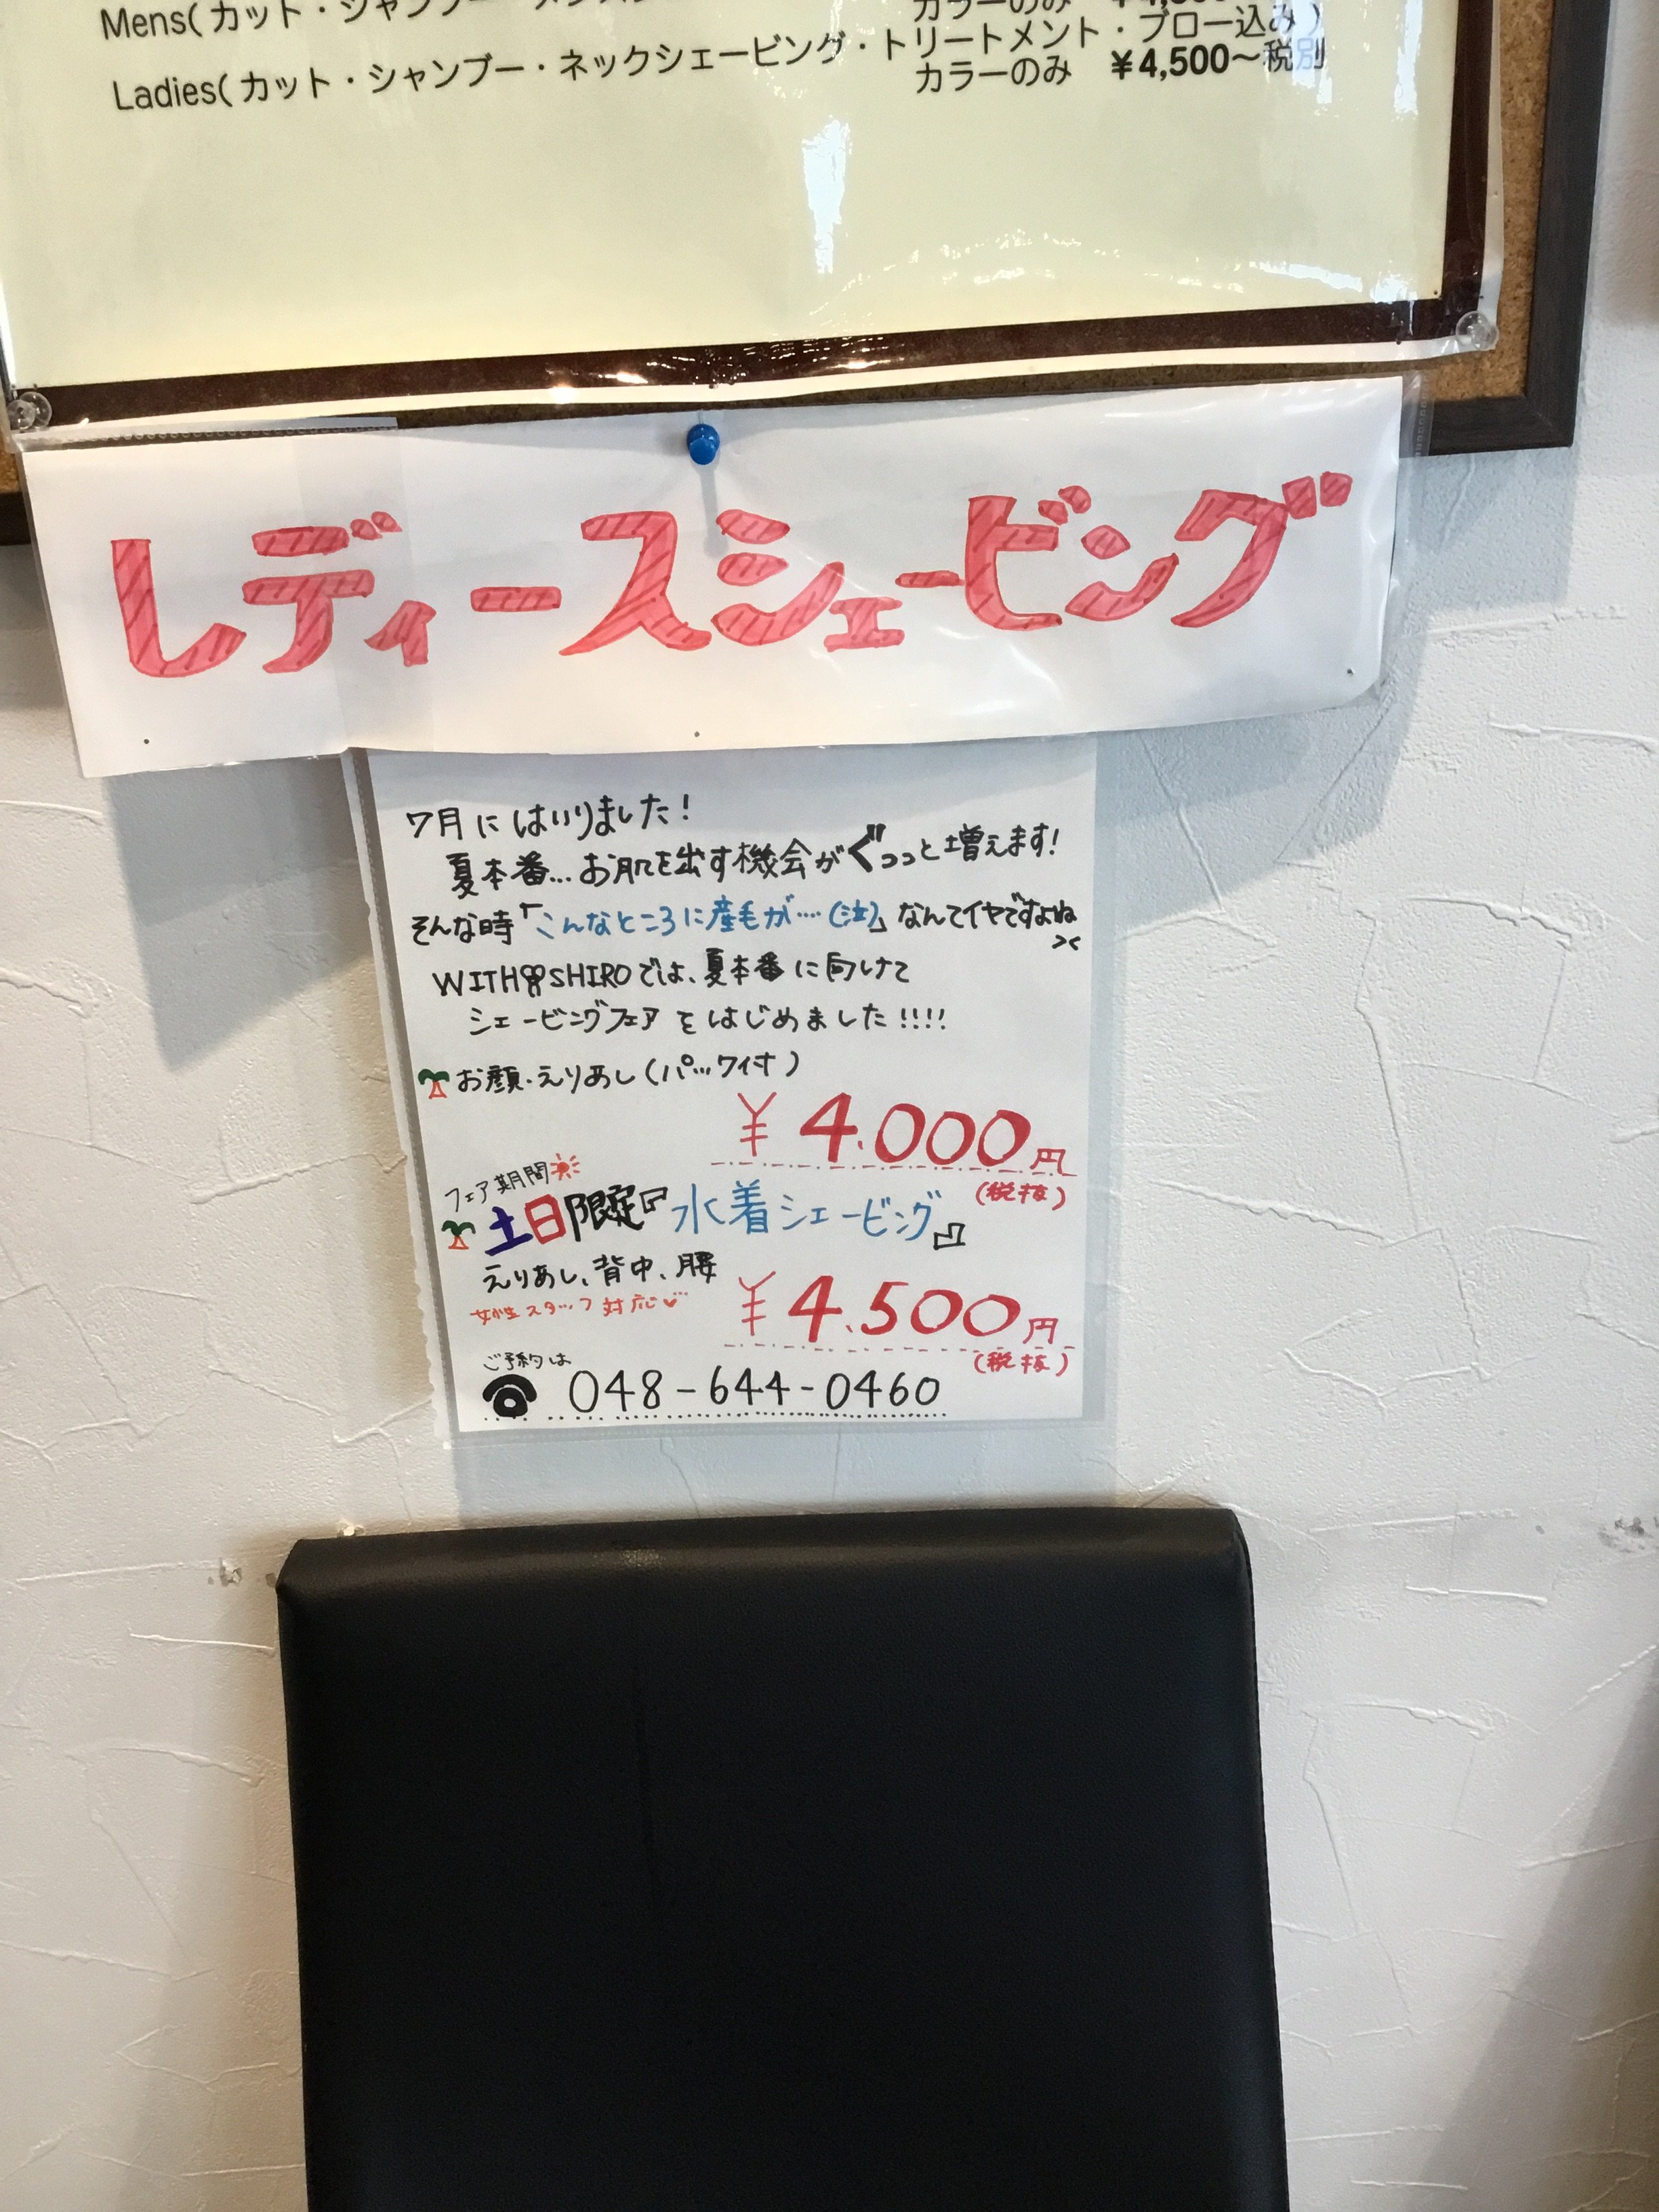 Mens(カット・シャンプー・
カラーのみ
Ladies(カット・シャンプー・ネックシェービング・トリートメント・ブロー込み)
カラーのみ ¥4,500~税別
レディースシェービング
7月にはいりました!
夏本番…お肌を出す機会がぐっっと増えます!
そんな時「こんなところに産毛が…(泣)」なんてイヤですよね><
WITH SHIROでは、夏本番に向けて
シェービングフェアをはじめました!!!!
お顔・えりあし(パック付)
¥4.000円
(税抜)
フェア期間
土日限定『水着シェービング』
えりあし、背中、腰
女性スタッフ対応♡
¥4.500円
(税抜)
ご予約は
048-644-0460